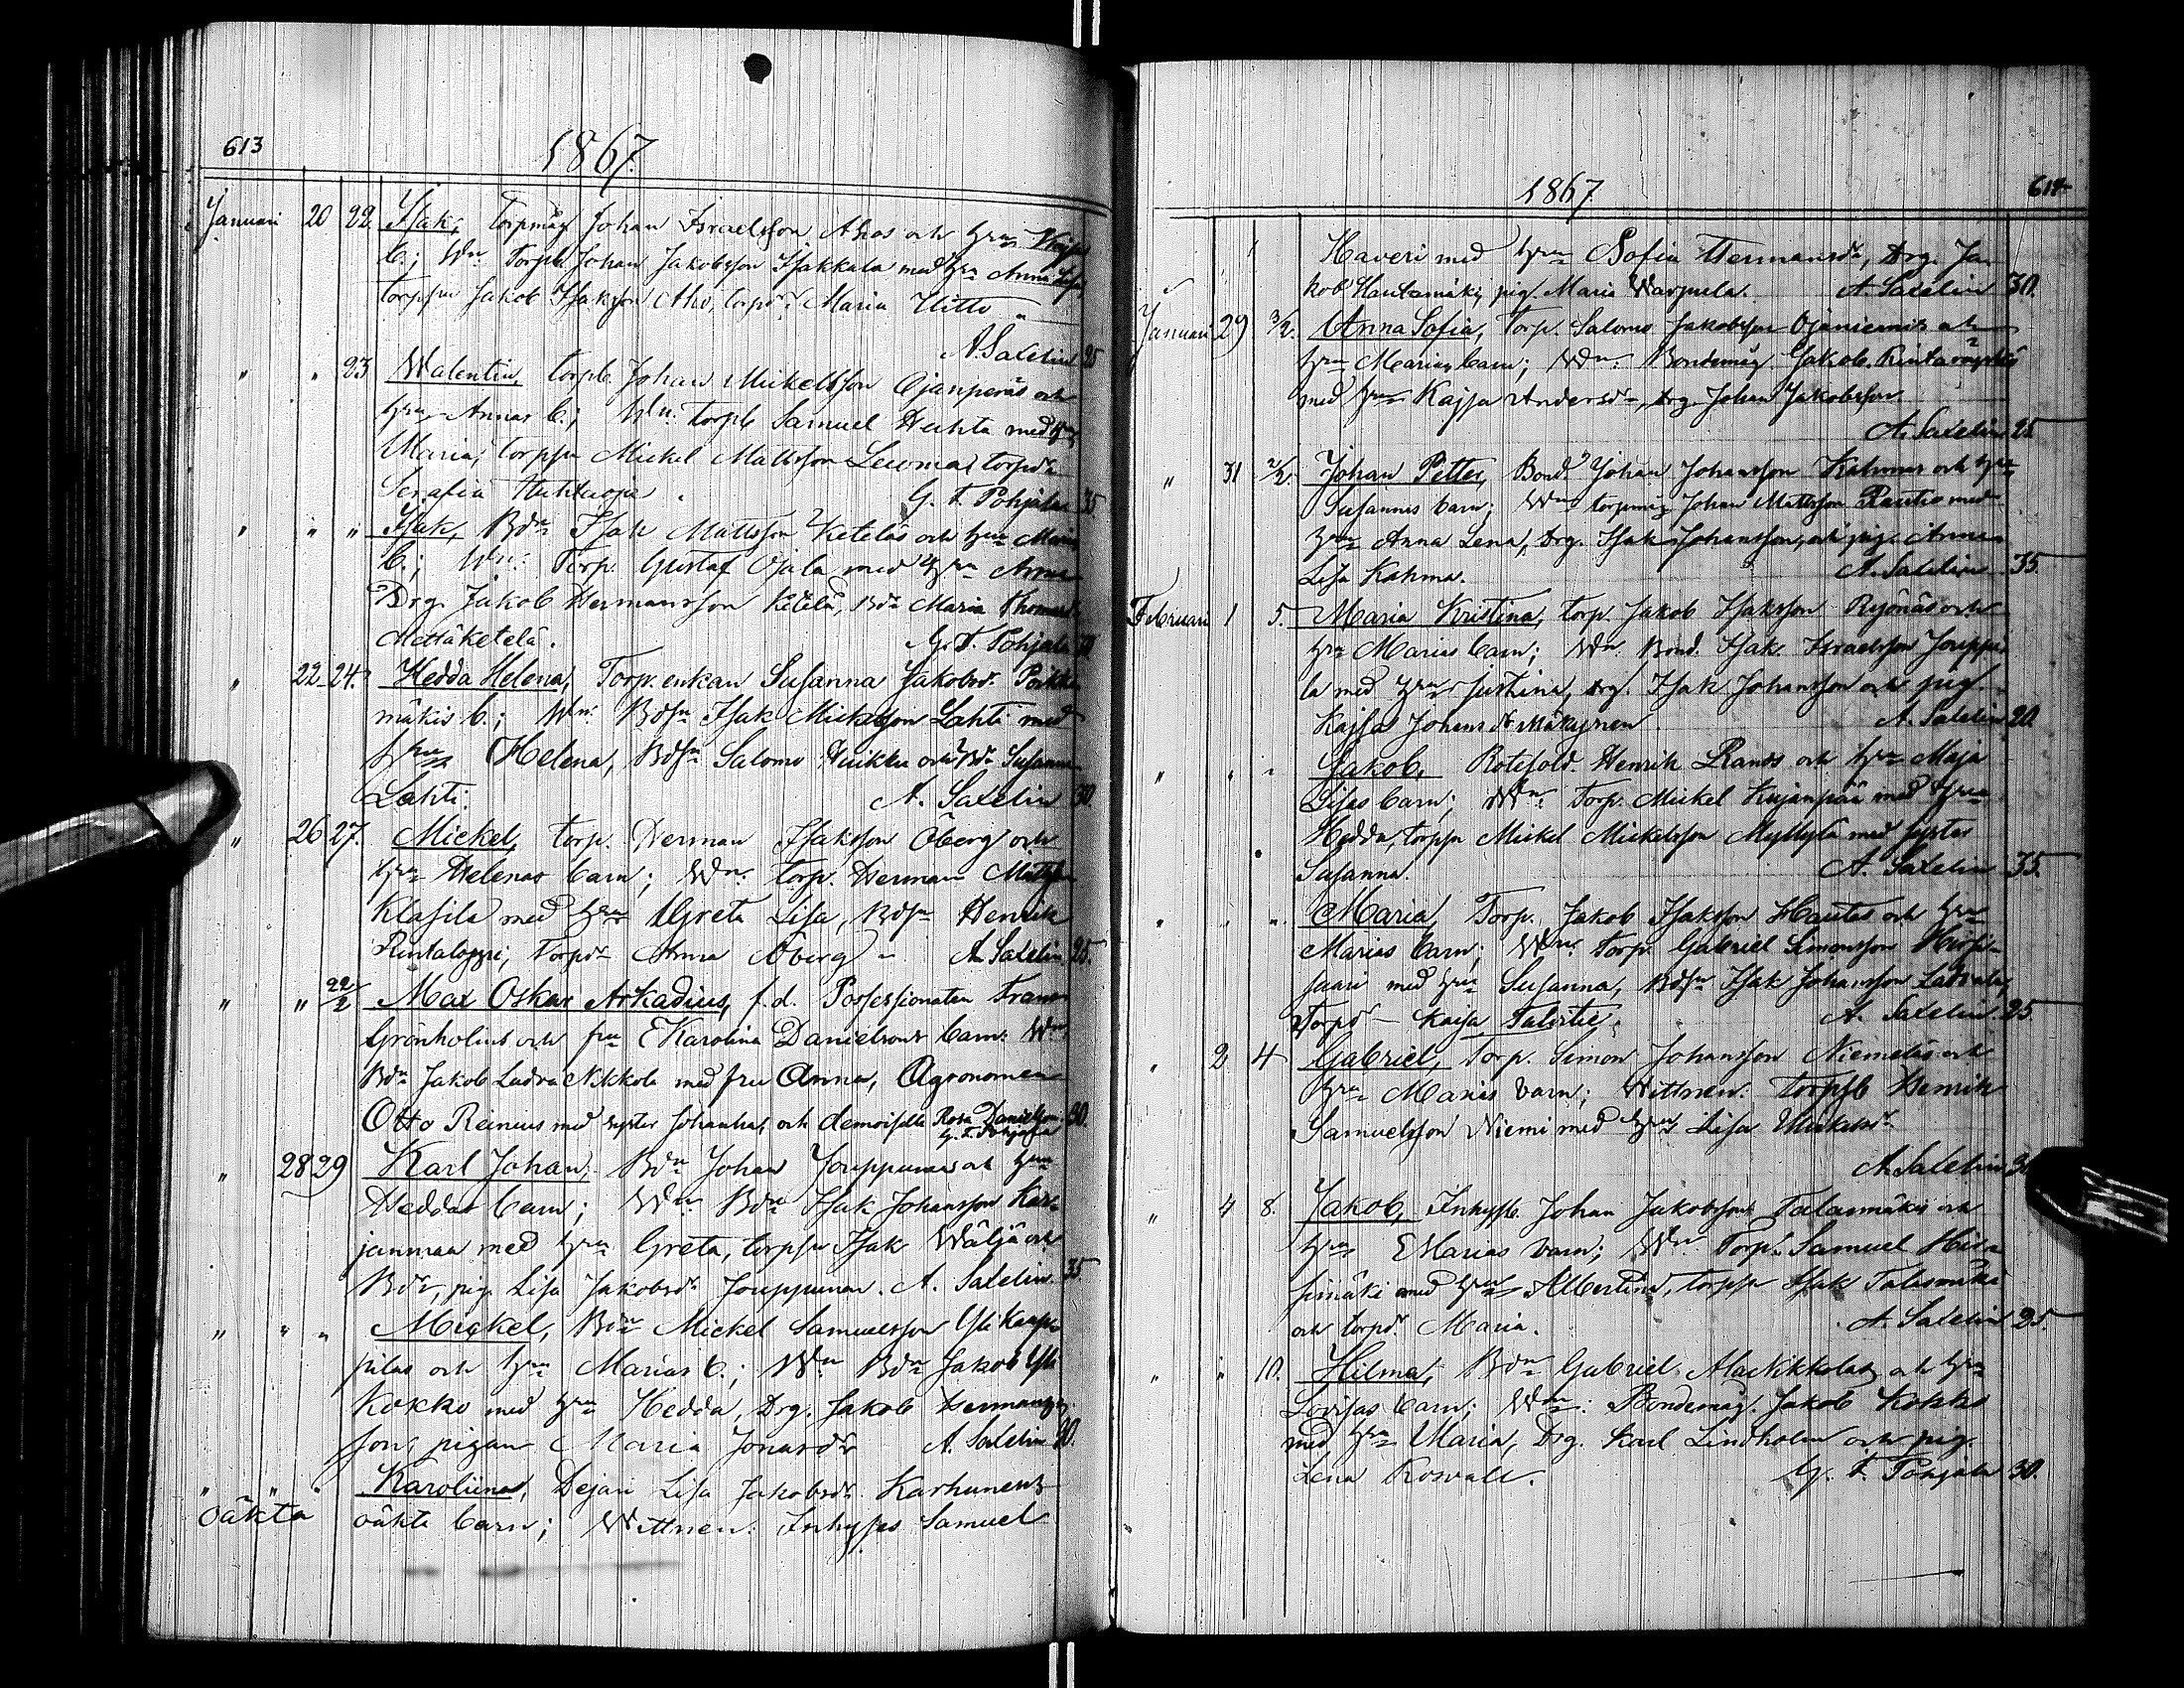 613
1867.
Januari 20 22. Isak, torpmåg Johan Israelsson Ahos och hru Kajsas
b.; Wn: Torpb. Johan Jakobsson Isakkala med hru Anna Lisa,
torpson Jakob Isaksson Aho, torpdr Maria Hitto
A. Saxelin 25
" " 23 Walentin, torpb. Johan Mickelsson Ojanperäs och
hru Annas b.; Wn: torpb Samuel Huhta med hru
Maria, torpson Mickel Mattsson Leuoma torpdr
Serafia Huhtaoja. G. F. Pohjala 35.
" " " Isak, Bdn Isak Mattsson Keteläs och hru Marias
b.; Wn: Torp. Gustaf Ojala med hru Anna
Drg. Jakob Hermansson Ketelä, Bdr Maria Thomasdr
Mettäketelä. G. F. Pohjala
" 22 24. Hedda Helena, Torp. enkan Susanna Jakobsdr
mäkis b.; Wn: Bdsn Isak Mickelsson Lahti med
hru Helena, Bdsn Salomo och Bdr Susanna
Lahti. A. Saxelin 30.
" 26 27. Mickel, torp. Herman Isaksson Öberg och
hru Helenas barn; Wn: torp. Herman Mattsson
Klasila med hru Greta Lisa, Bdsn Henrik
Rintaloppi, Torpdr Anna Öberg A. Saxelin 25.
" " 22/2 Max Oskar Arkadius, f.d. Possessionaten Frans
Grönholms och fru E Karolina Danielsons barn: Wn
Bdn Jakob Ladva Nikkola med fru Anna, Agronomen
Otto Reinius med syster Johanna, och demoiselle Rosa Danielson 30.
G. F. Pohjala
" 28 29 Karl Johan, Bdn Johan Jouppunens och hru
Heddas barn; Wn: Bdn Isak Johansson Kar-
janmaa med hru Greta, torpson Isak Wäljä och
Bdr, pig. Lisa Jakobsdr Jouppunen. A. Saxelin 35.
" " " Mickel, Bdn Mickel Samuelsson Yli Kaup-
pilas och hru Marias b.; Wn Bdn Jakob Yli
Kokko med hru Hedda, Drg. Jakob Hermans-
son, pigan Maria Jonasdr A. Saxelin 20.
" " " Karoliina, Dejan Lisa Jakobsdr Karhunens
oäkta oäkta barn; Wittnen: Inhyses Samuel
1867 614
Haveri med hru Sofia Hermansdr, Drg. Ja-
kob Hautamäki, pig. Maria Warpula. A. Saxelin 30.
Januari 29 3/2. Anna Sofia, Torp. Salomo Jakobsson Ojaniemis och
hru Marias barn; Wn: Bondemåg Jakob
med hru Kajsa Andersdr, drg. Johan Jakobsson
A. Saxelin 25
" 31 2/2 Johan Petter, Bond. Johan Johansson Kahmas och hru
Susannas barn; Wn torpmåg Johan Mattsson Rautio med
hru Anna Lena, Drg. Isak Johansson, och pig. Anna
Lisa Kahma. A. Saxelin 35.
Februari 1 5. Maria Kristina, torp. Jakob Isaksson Ryönäs och
hru Marias barn; Wn: Bond. Isak Israelsson Jouppi-
la med hru Justina, drg. Isak Johansson och pig.
Kajsa Johansdr Mäkaynen. A. Saxelin 20
" " " Jakob, Rotesold. Henrik Rands och hru Maja
Lisas barn; Wn: Torp. Mickel Kujanpää med hru
Hedda, torpson Mickel Mickelsson Myllylä med syster
Susanna. A. Saxelin 35.
" " " Maria, Torp. Jakob Isaksson Hautas och hru
Marias barn; Wn: torp. Gabriel Simonsson Hirsi-
saari med hru Susanna, Bdsn Isak Johansson Latvala,
Torpdr Kaisa Talvitie. A. Saxelin 25
" 2 4 Gabriel, Torp. Simon Johansson Niemeläs och
hru Marias barn; Wittnen: torpsb Henrik
Samuelsson Niemi med hru Lisa Mickelsdr.
A. Saxelin
" 4 8. Jakob, Inhysb. Johan Jakobsson Talasmäkis och
hru E Marias barn; Wn: Torp. Samuel Hir-
simäki med hru Albertina, torpson Isak Talasmäki
och torpdr Maria. A. Saxelin 25.
" " 10. Hilma, Bdn Gabriel Alanikkolas och hru
Lovisas barn; Wn: Bondemåg. Jakob Kokko
med hru Maria, Drg. Karl Lindholm och pig.
Lena Rosvall. G. F. Pohjala 30.